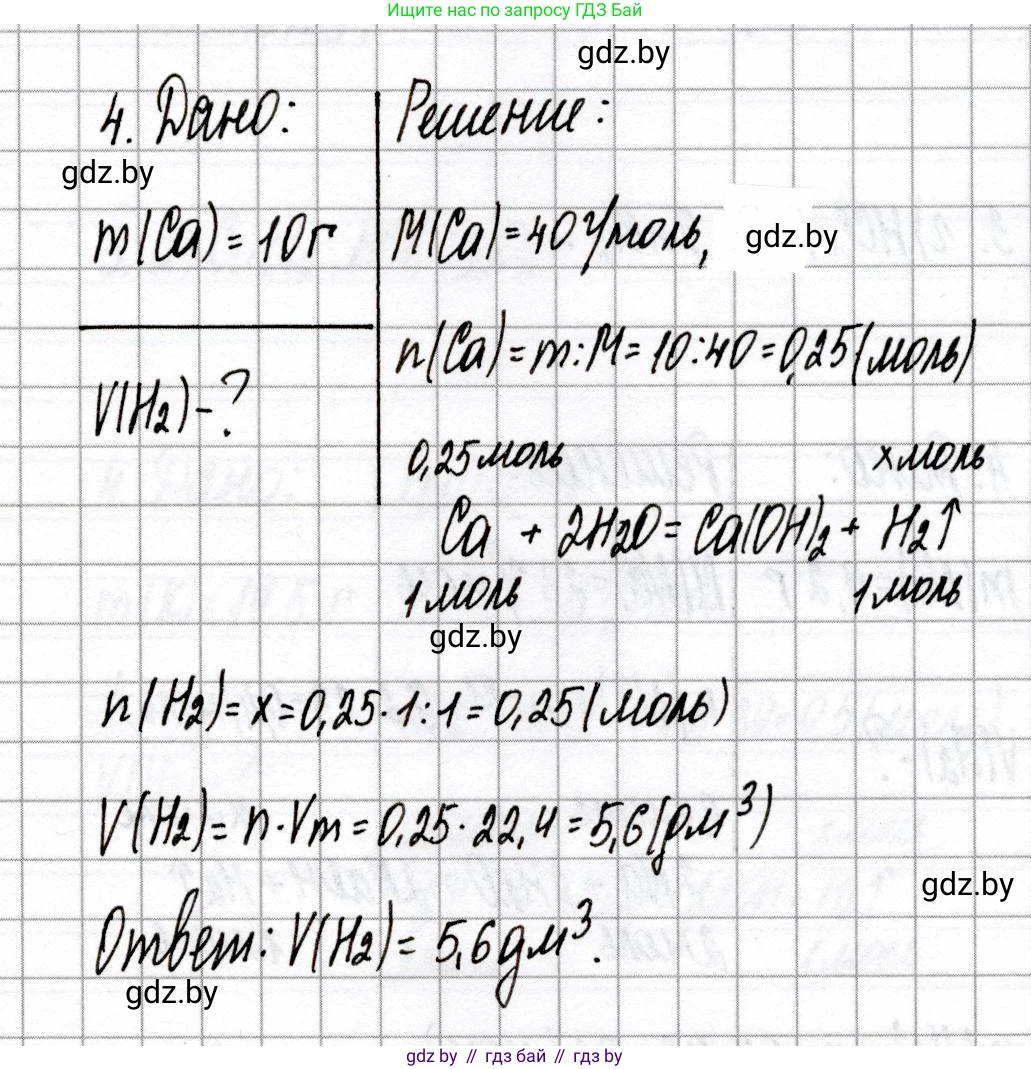 Ищите нас по запросу ГДЗ Бай
gdz.by
4. Дано:
Решение:
gdz.by
m(Ca) = 10 г
M(Ca) = 40 г/моль,
gdz.by
n(Ca) = m : M = 10 : 40 = 0,25 (моль)
V(H₂) - ?
0,25 моль х моль
Ca + 2H₂O = Ca(OH)₂ + H₂↑
1 моль 1 моль
gdz.by
n(H₂) = x = 0,25 · 1 : 1 = 0,25 (моль)
V(H₂) = n · Vm = 0,25 · 22,4 = 5,6 (дм³)
gdz.by
Ответ: V(H₂) = 5,6 дм³.
gdz.by
gdz by // гдз бай // гдз by